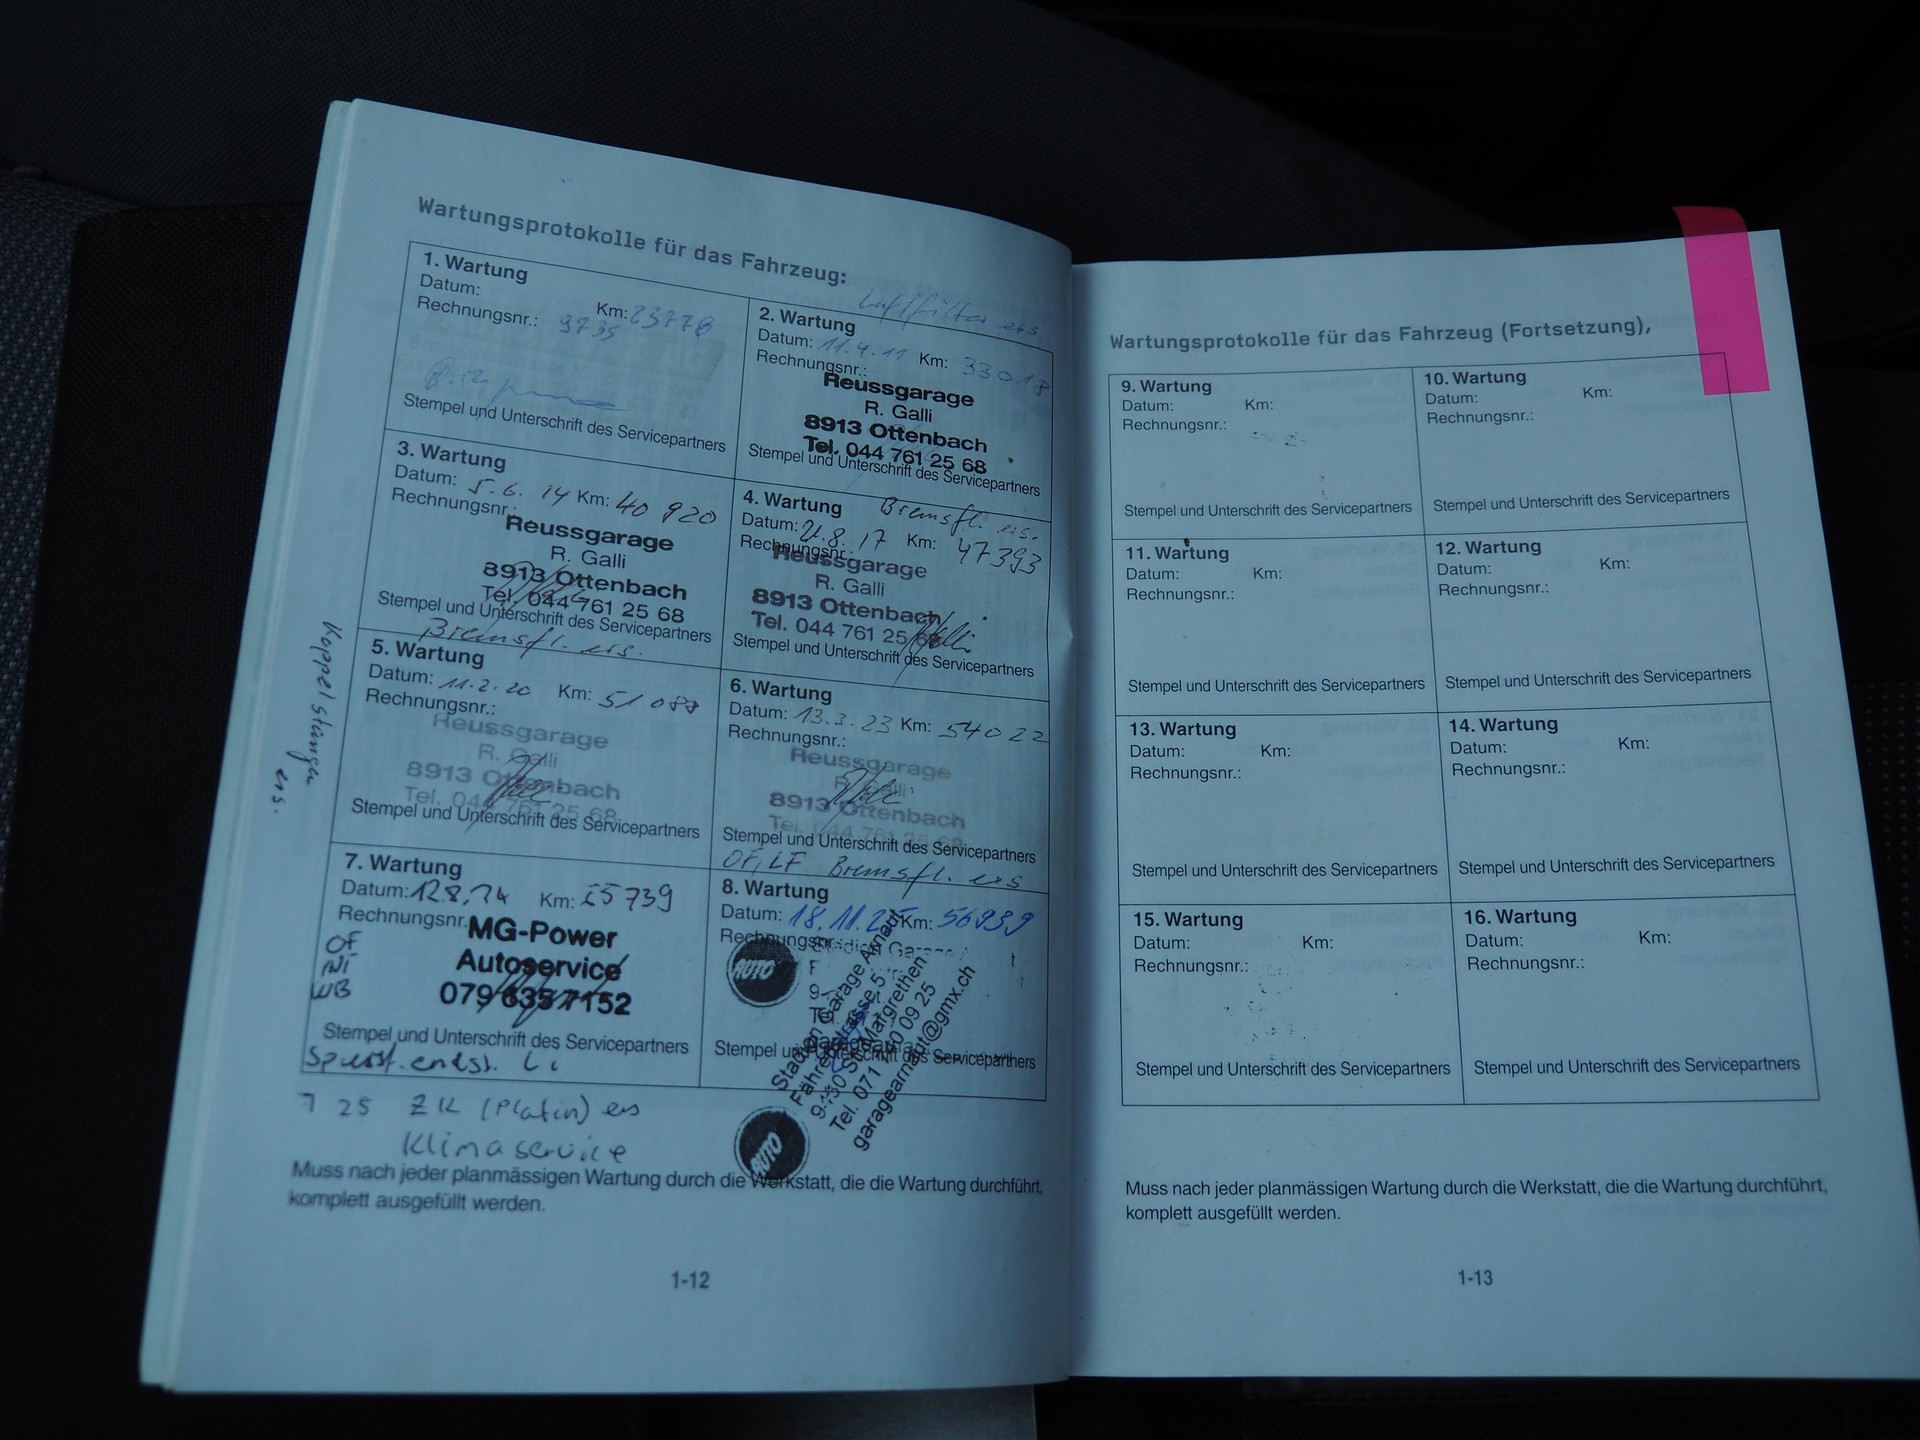 Wartungsprotokolle für das Fahrzeug:
1. Wartung
Datum: Km: 23778
Rechnungsnr.: 9735
Stempel und Unterschrift des Servicepartners
Luftfilter ers
2. Wartung
Datum: 11.4.11 Km: 33018
Rechnungsnr.:
Reussgarage
R. Galli
8913 Ottenbach
Tel. 044 761 25 68
Stempel und Unterschrift des Servicepartners
3. Wartung
Datum: 5.6.14 Km: 40 920
Rechnungsnr.:
Reussgarage
R. Galli
8913 Ottenbach
Tel. 044 761 25 68
Stempel und Unterschrift des Servicepartners
Bremsfl. ers.
4. Wartung Bremsfl. ers.
Datum: 21.8.17 Km: 47393
Rechnungsnr.:
Reussgarage
R. Galli
8913 Ottenbach
Tel. 044 761 25 68
Stempel und Unterschrift des Servicepartners
Koppelstangen
ers.
5. Wartung
Datum: 11.2.20 Km: 51 088
Rechnungsnr.:
Reussgarage
R. Galli
8913 Ottenbach
Tel. 044 761 25 68
Stempel und Unterschrift des Servicepartners
6. Wartung
Datum: 13.3.23 Km: 54022
Rechnungsnr.:
Reussgarage
R. Galli
8913 Ottenbach
Tel. 044 761 25 68
Stempel und Unterschrift des Servicepartners
OF, LF Bremsfl. ers
7. Wartung
Datum: 12.8.24 Km: 55739
Rechnungsnr.
MG-Power
Autoservice
079 635 7152
OF
INT
WB
Stempel und Unterschrift des Servicepartners
Spurst. endst. Li
8. Wartung
Datum: 18.11.25 Km: 56939
Rechnungsnr.
AUTO
Stadion Garage Arnaut
Fährestrasse 5
9430 St. Margrethen
Tel. 071 740 09 25
garagearnaut@gmx.ch
Stempel und Unterschrift des Servicepartners
AUTO
7 25 ZK (Platin) ers
Klimaservice
Muss nach jeder planmässigen Wartung durch die Werkstatt, die die Wartung durchführt,
komplett ausgefüllt werden.
1-12
Wartungsprotokolle für das Fahrzeug (Fortsetzung),
9. Wartung
Datum: Km:
Rechnungsnr.:
Stempel und Unterschrift des Servicepartners
10. Wartung
Datum: Km:
Rechnungsnr.:
Stempel und Unterschrift des Servicepartners
11. Wartung
Datum: Km:
Rechnungsnr.:
Stempel und Unterschrift des Servicepartners
12. Wartung
Datum: Km:
Rechnungsnr.:
Stempel und Unterschrift des Servicepartners
13. Wartung
Datum: Km:
Rechnungsnr.:
Stempel und Unterschrift des Servicepartners
14. Wartung
Datum: Km:
Rechnungsnr.:
Stempel und Unterschrift des Servicepartners
15. Wartung
Datum: Km:
Rechnungsnr.:
Stempel und Unterschrift des Servicepartners
16. Wartung
Datum: Km:
Rechnungsnr.:
Stempel und Unterschrift des Servicepartners
Muss nach jeder planmässigen Wartung durch die Werkstatt, die die Wartung durchführt,
komplett ausgefüllt werden.
1-13